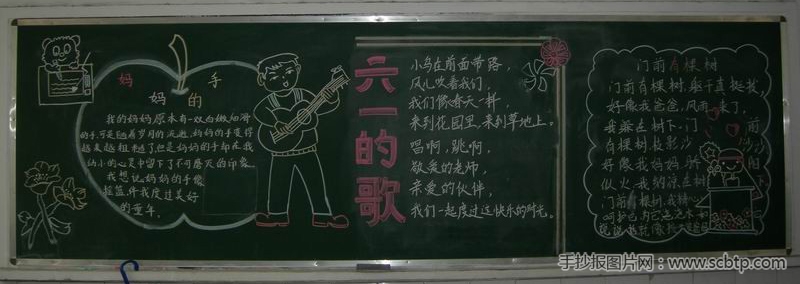 妈 手
妈 的
我的妈妈原本有一双白嫩细滑
的手,可是随着岁月的流逝,妈妈的手变得
越来越粗糙了但是妈妈的手却在我
幼小的心灵中留下了不可磨灭的印象
我想说妈妈的手像
摇篮伴我度过美好
的童年。
六一的歌
小鸟在前面带路,
风儿吹着我们,
我们像春天一样,
来到花园里,来到草地上。
唱啊,跳啊,
敬爱的老师,
亲爱的伙伴,
我们一起度过这快乐的时光。
门前有棵树
门前有棵树,躯干真挺拔,
好像我爸爸,风雨 来了,
我躲在树下,门 前
有棵树投影沙 沙
好像我妈妈
似火 我纳凉在树
门前有棵树,我精心
呵护它为它浇水
手抄报图片网:www.scbtp.com